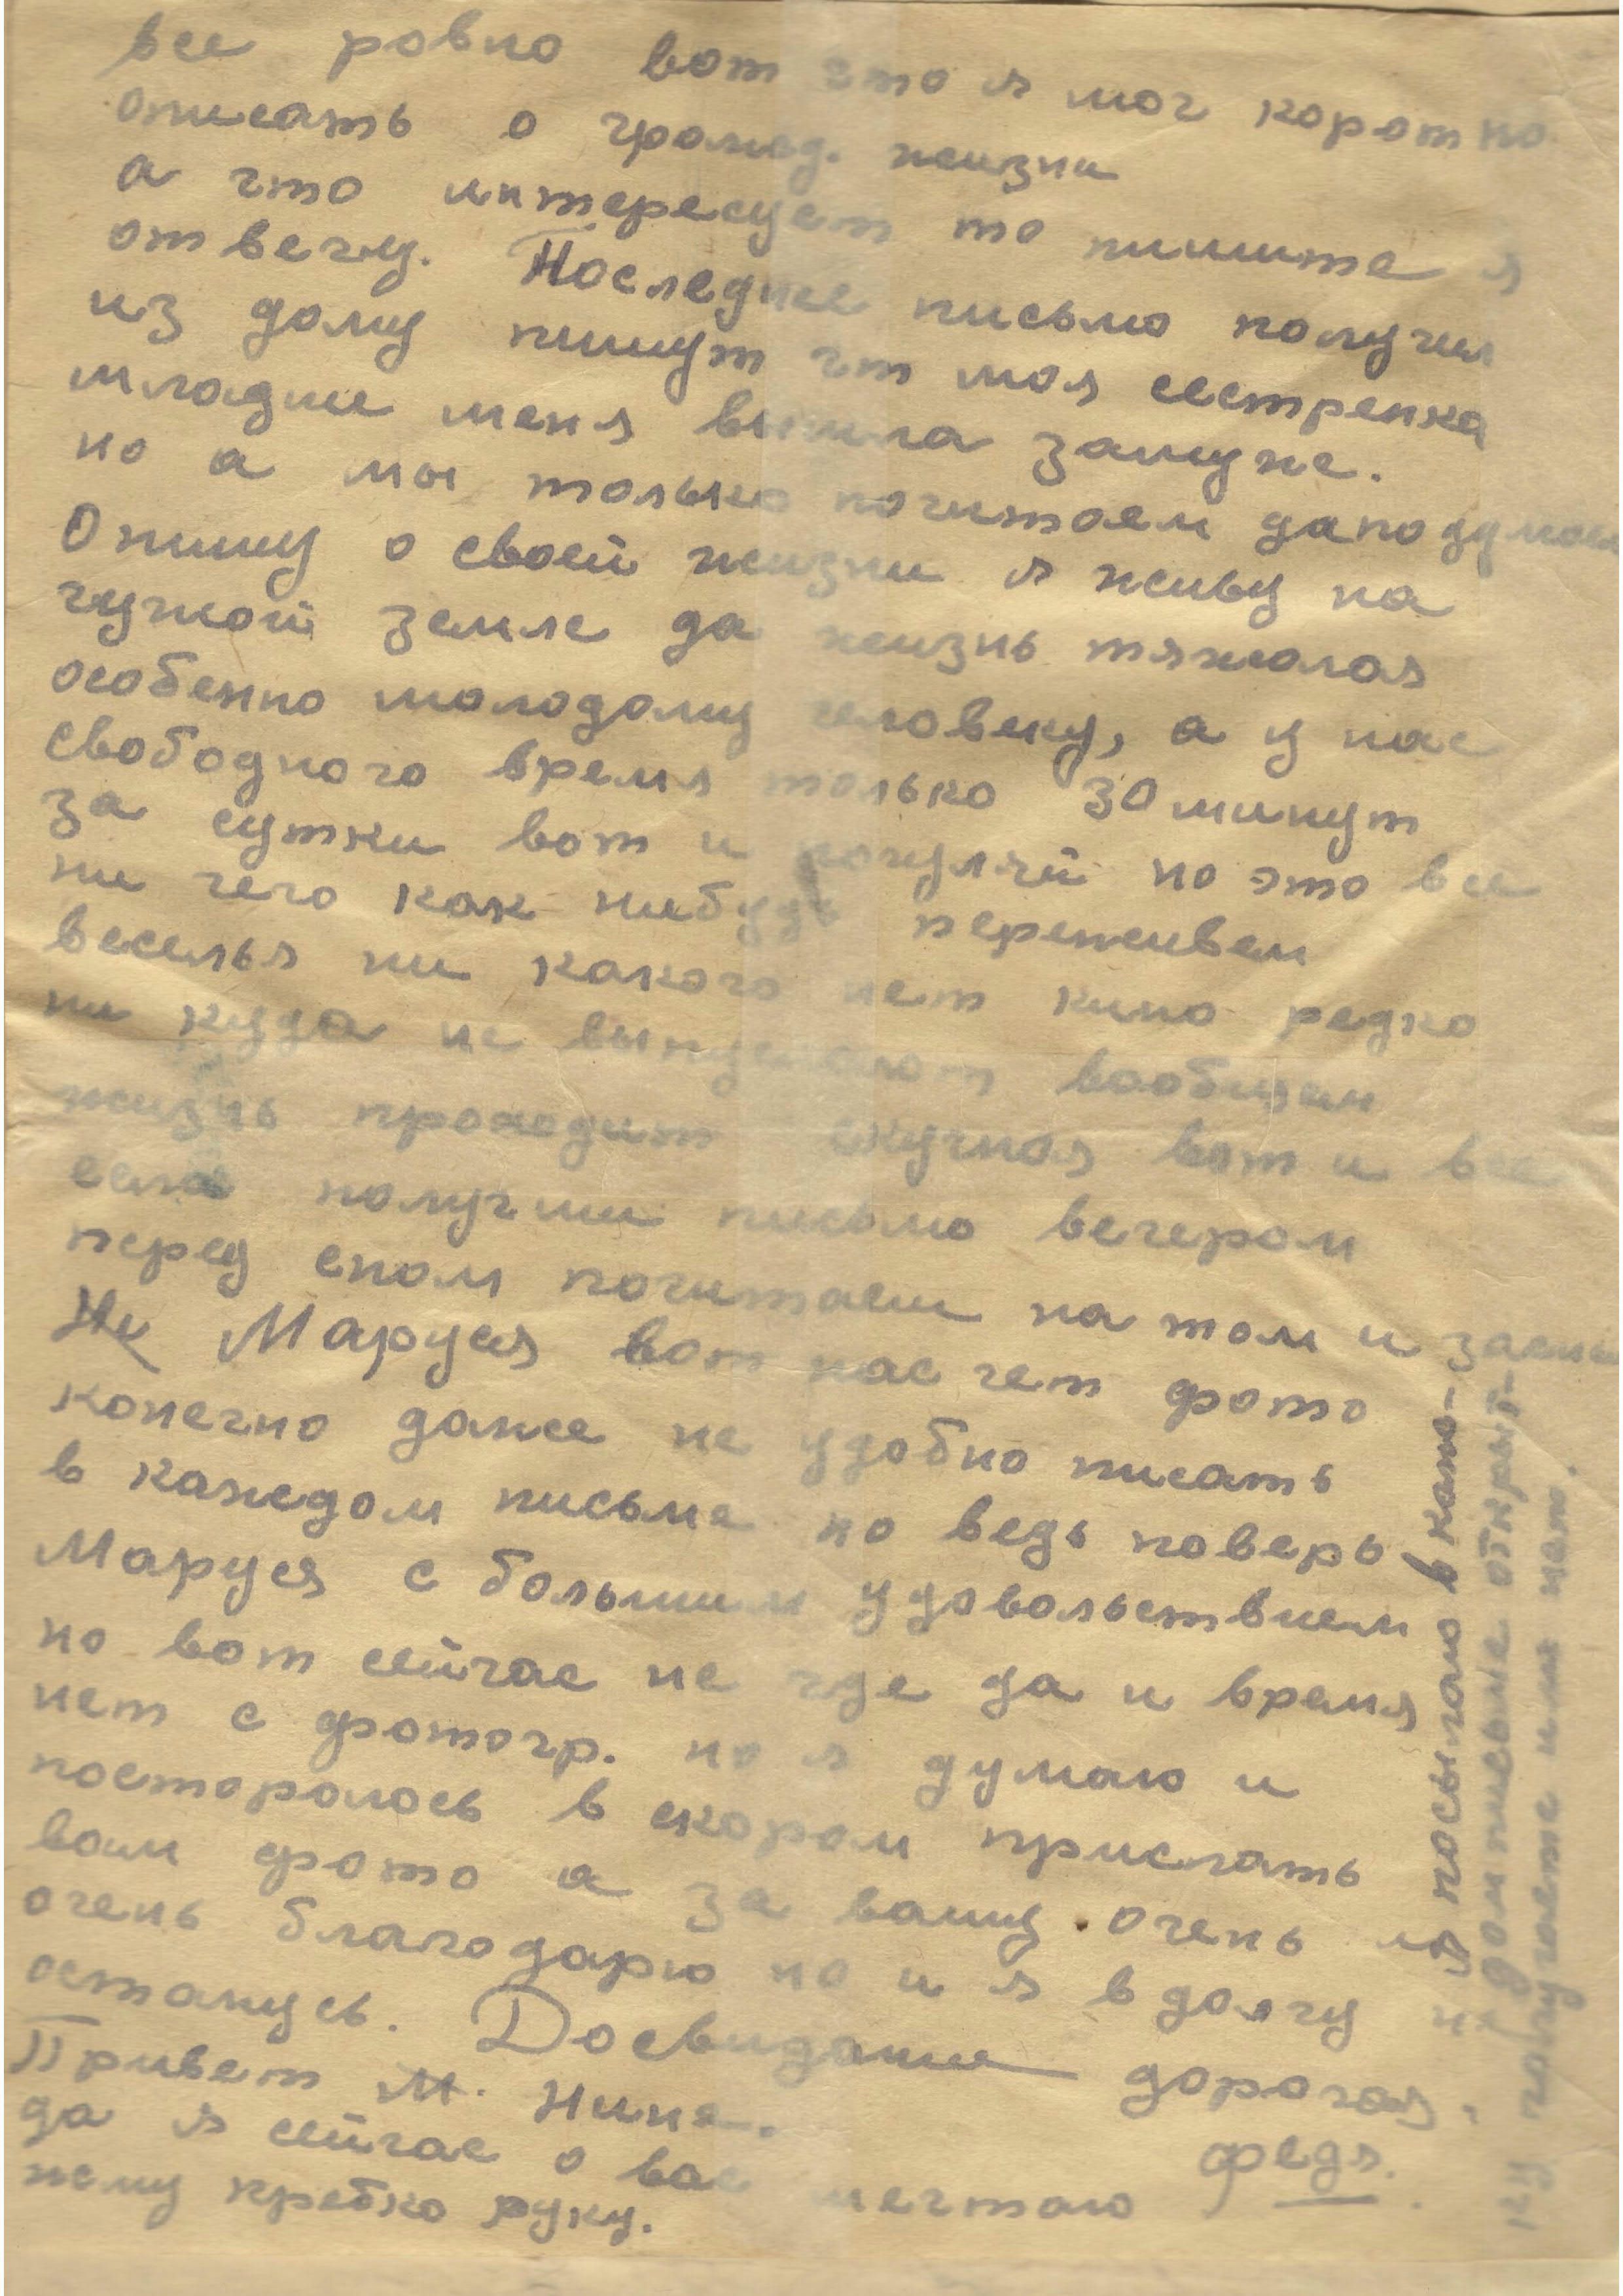 все ровно вот что я мог коротко
описать о громад. жизни
а что интересует то пишите я
отвечу. Последнее письмо получил
из дому пишут чт моя сестренка
младше меня вышла замуже.
но а мы только почитаем даподумаем
Опишу о своей жизни я живу на
чужой земле да жизнь тяжолая
особенно молодому человеку, а у нас
свободного время только 30 минут
за сутки вот и погуляй но это все
ни чего как нибудь переживем
веселья ни какого нет кино редко
ни куда не выпускают вообщем
жизнь проходит скучная вот и все
если получиш письмо вечером
перед сном почитаеш на том и
Ну Маруся вот нас чет фото
конечно даже не удобно писать
в каждом письме но ведь поверь
Маруся с большим удовольствием
но вот сейчас не где да и время
нет с фотогр. но я думаю и
посторолось в скором прислать
вам фото а за вашу очень
очень благодарю но и я в долгу не
останусь. Досвидание дорогая.
Привет М. Нине.
да я сейчас о вас мечтаю Федя.
жму крепко руку.
я посылаю в каж-
дом письме открыт-
ку получаете или нет.